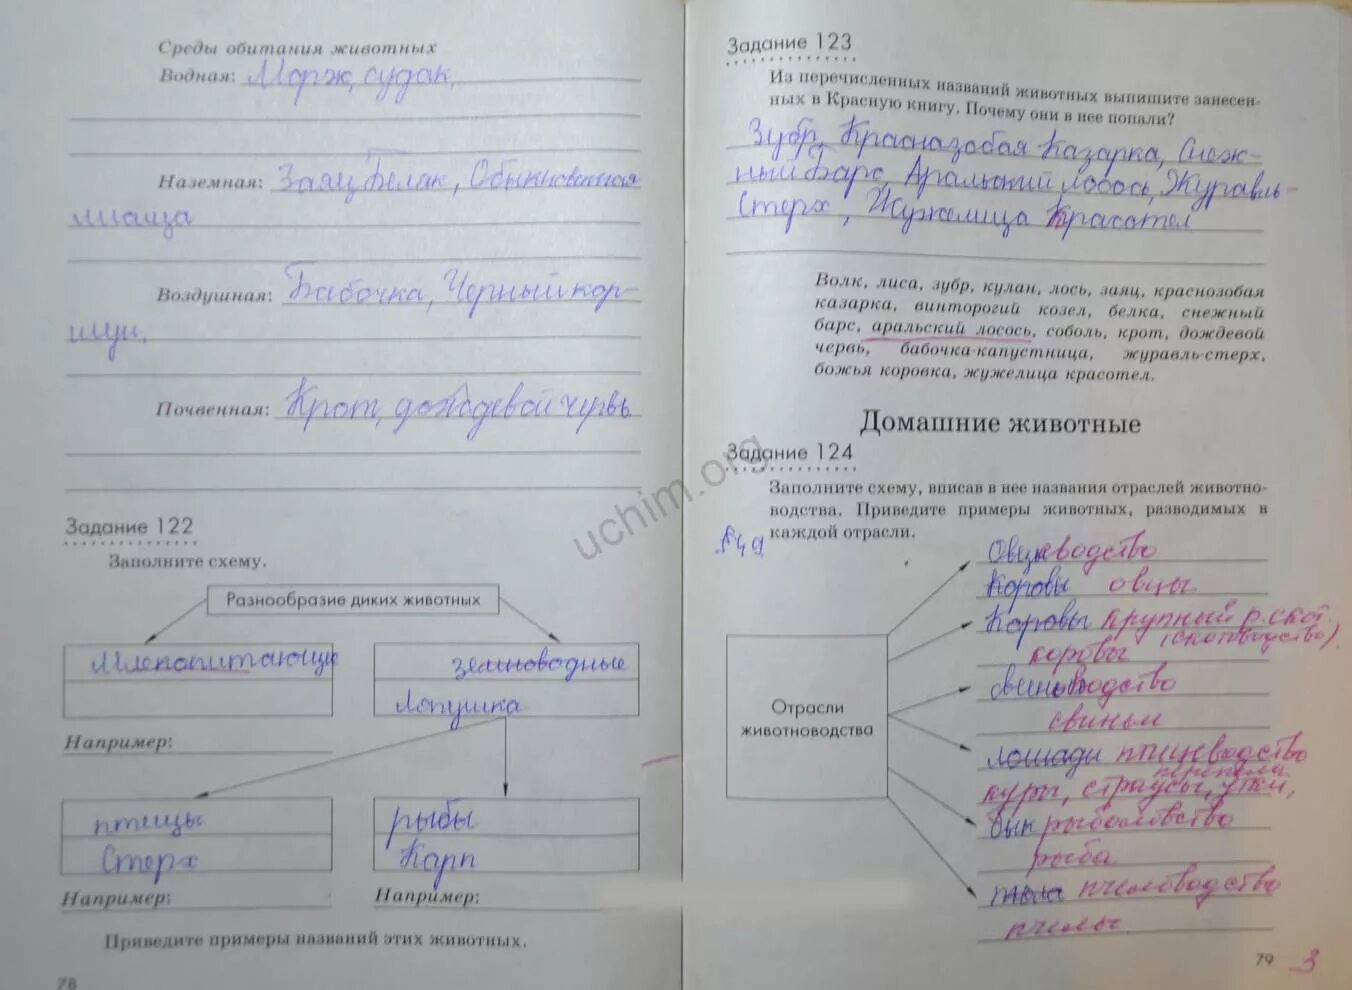 Среды обитания животных
Водная: Морж, судак,
Наземная: Заяц Беляк, Обыкновенная
лиаща
Воздушная: Бабочка, Черный кор-
шун.
Почвенная: Крот, дождевой червь
Задание 122
Заполните схему.
Разнообразие диких животных
Млекопитающие
земноводные
Лопушка
Например:
птицы
Стерх
рыбы
Карп
Например:
Например:
Приведите примеры названий этих животных.
78
Задание 123
Из перечисленных названий животных выпишите занесен-
ных в Красную книгу. Почему они в нее попали?
Зубр, Красназобая Казарка, Снеж-
ный Барс, Аральский лосось, Журавль-
Стерх, Жужелица Красотел
Волк, лиса, зубр, кулан, лось, заяц, краснозобая
казарка, винторогий козел, белка, снежный
барс, аральский лосось, соболь, крот, дождевой
червь, бабочка-капустница, журавль-стерх,
божья коровка, жужелица красотел.
Домашние животные
Задание 124
Заполните схему, вписав в нее названия отраслей животно-
водства. Приведите примеры животных, разводимых в
каждой отрасли.
Отрасли
животноводства
Овцеводство
Коровы овцы
Коровы крупный р.скот.
(скотоводство)
коровы
свиноводство
свиньи
лошади птицеводство
перепела
куры, страусы, утки,
бык рыболовство
рыба
пчеловодство
пчелы
79
3
uchim.org